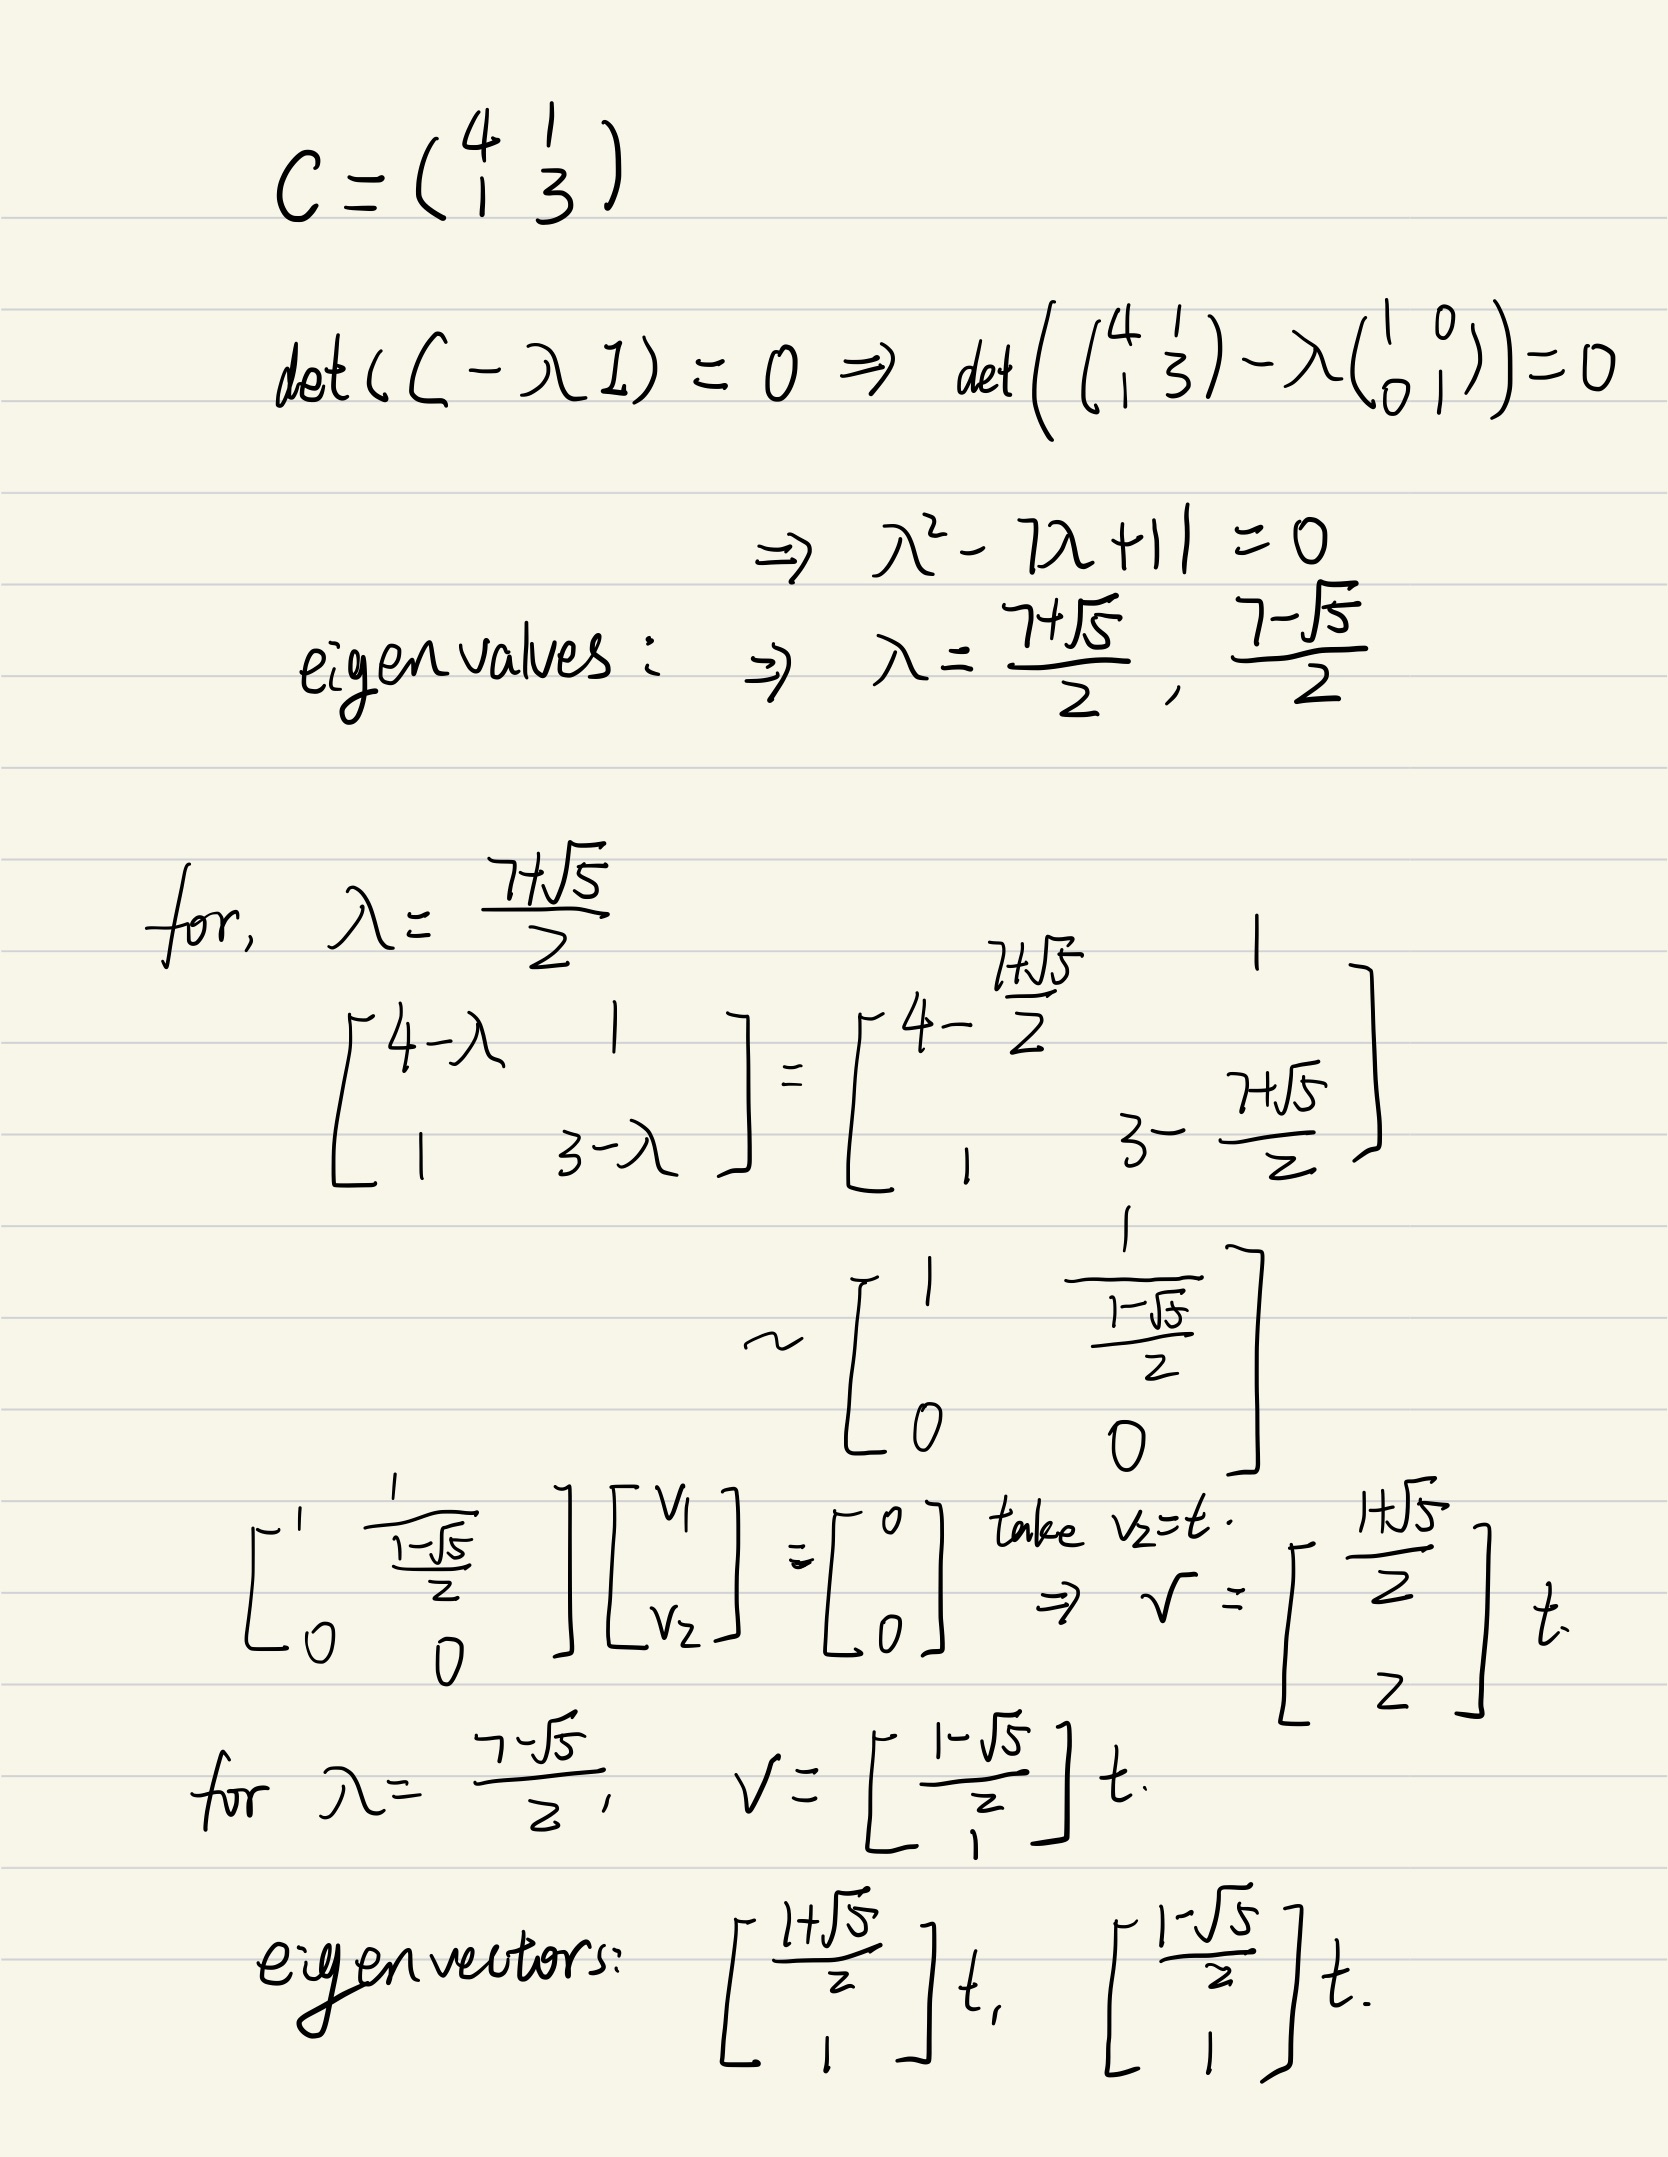 C = (4 1 / 1 3)
det(C - λI) = 0 ⇒ det((4 1 / 1 3) - λ(1 0 / 0 1)) = 0
⇒ λ² - 7λ + 11 = 0
eigenvalues: ⇒ λ = (7+√5)/2, (7-√5)/2
for, λ = (7+√5)/2
[4-λ 1 / 1 3-λ] = [4 - (7+√5)/2 1 / 1 3 - (7+√5)/2]
~ [1 1/((1-√5)/2) / 0 0]
[1 1/((1-√5)/2) / 0 0] [v₁ / v₂] = [0 / 0] take v₂=t. ⇒ v = [(1+√5)/2 / 2] t.
for λ = (7-√5)/2, v = [(1-√5)/2 / 1] t.
eigenvectors: [(1+√5)/2 / 1] t, [(1-√5)/2 / 1] t.